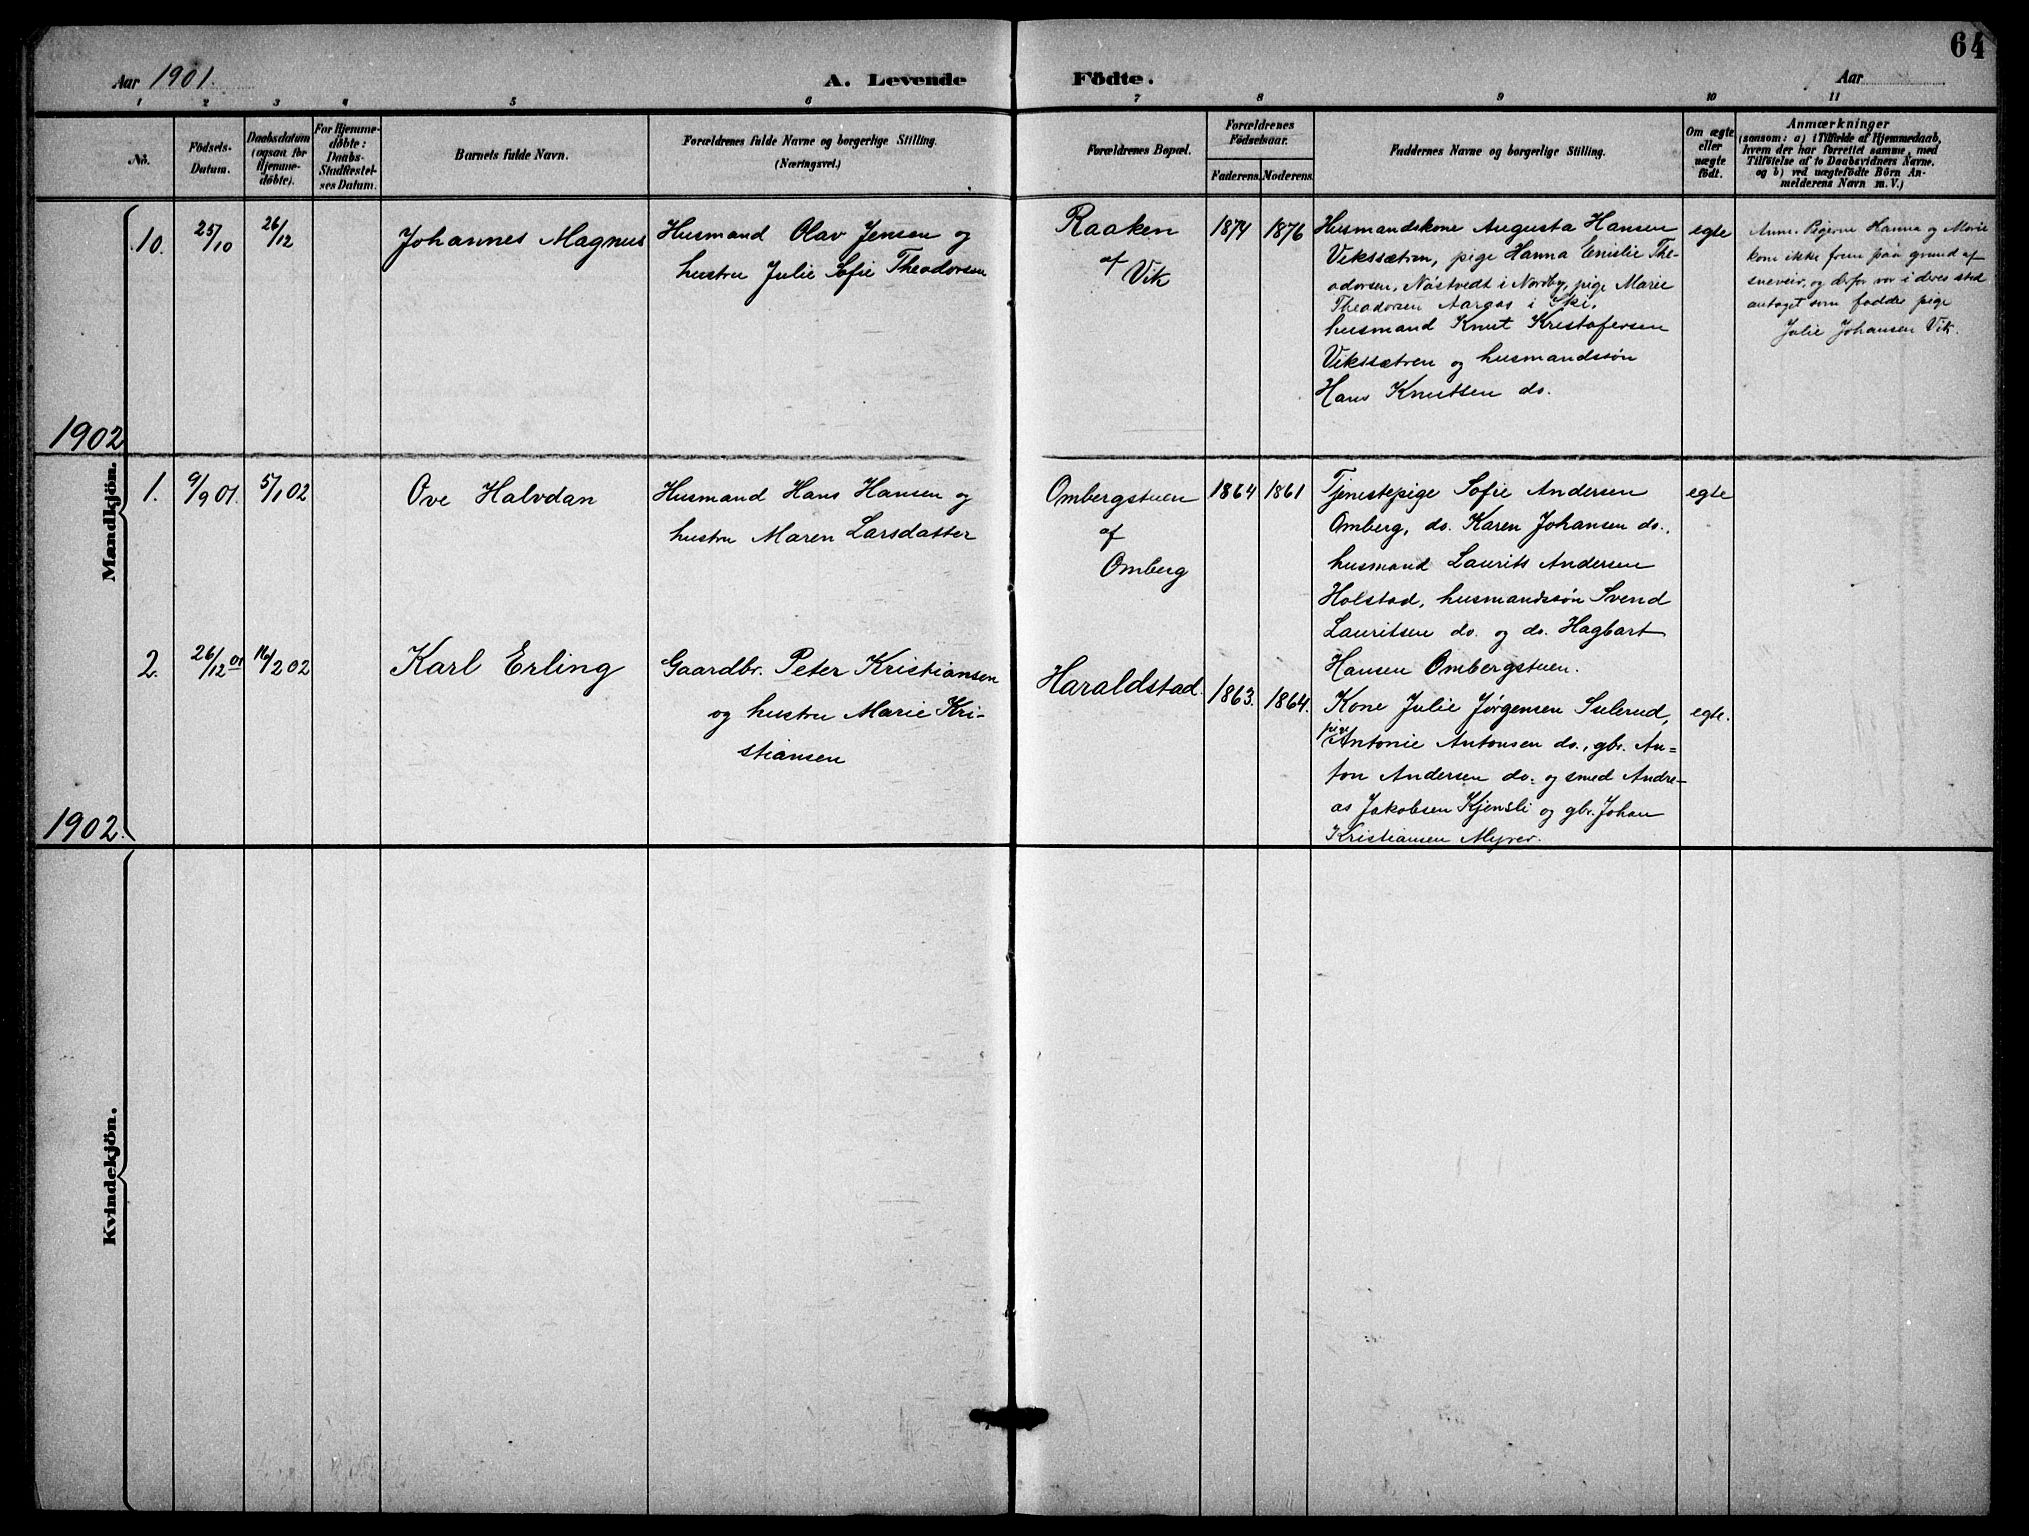 64
Aar 1901. A. Levende Födte. Aar
1 2 3 4 5 6 7 8 9 10 11
No.
Födsels-
Datum.
Daabsdatum
(ogsaa for
Hjemme-
döbte).
For Hjemme-
döbte:
Daabs-
Stadfæstel-
ses Datum.
Barnets fulde Navn.
Forældrenes fulde Navne og borgerlige Stilling.
(Næringsvei.)
Forældrenes Bopæl.
Forældrenes
Födselsaar.
Faderens. Moderens.
Faddernes Navne og borgerlige Stilling.
Om ægte
eller
uægte
födt.
Anmærkninger
(saasom: a) i Tilfælde af Hjemmedaab,
hvem der har forrettet samme, med
Tilföielse af to Daabsvidners Navne.
og b) ved uægtefödte Börn An-
melderens Navn m. V.)
Mandkjön.
10. 25/10 26/12
Johannes Magnus
Husmand Olav Jensen og
hustru Julie Sofie Theodorsen
Raaken
af
Vik
1874 1876
Husmandskone Augusta Hansen
Vikssætren, pige Hanna Emilie The-
odorsen, Nöstvedt i Nordby, pige Marie
Theodorsen Aargas i Ski,
husmand Knut Kristofersen
Vikssætren og husmandssøn
Hans Knutsen do.
egte
Anm. Pigerne Hanna og Marie
kom ikke frem paa grund af
sneveir, og derfor var i deres sted
antaget som fadder pige
Julie Johansen Vik.
1902
1. 9/9 01. 5/1 02
Ove Halvdan
Husmand Hans Hansen og
hustru Maren Larsdatter
Ombergstuen
af
Omberg
1864 1861
Tjenestepige Sofie Andersen
Omberg, do. Karen Johansen do.,
husmand Laurits Andersen
Holstad, husmandssøn Svend
Lauritsen do. og do. Hagbart
Hansen Ombergstuen.
egte
2. 26/12 01 16/2 02
Karl Erling
Gaardbr. Peter Kristiansen
og hustru Marie Kri-
stiansen
Haraldstad.
1863. 1864.
Kone Julie Jørgensen Sulerud,
pige
Antonie Antonsen do., gbr. An-
ton Andersen do. og smed Andre-
as Jakobsen Kjensli og gbr. Johan
Kristiansen Myrer.
egte.
1902.
Kvindekjön.